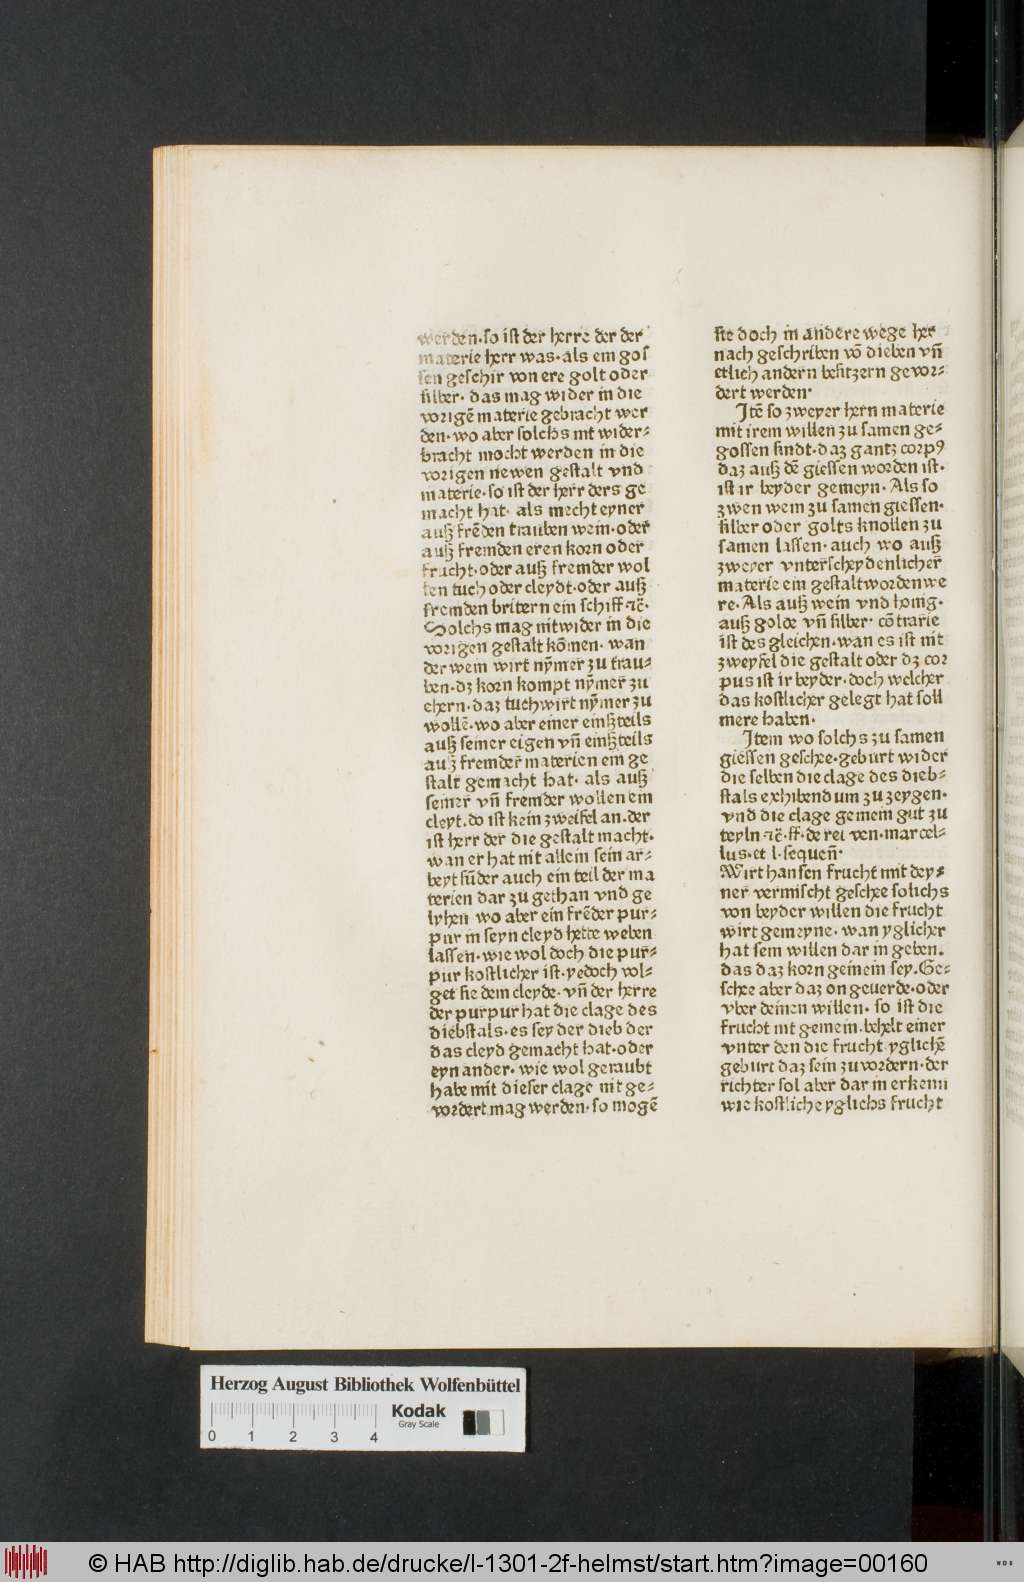 werden·so ist der herre der der
materie herr was·als ein gos
sen geschir von ere golt oder
silber· das mag wider in die
vorigẽ materie gebracht wer
den·wo aber solchs nit wider⸗
bracht mocht werden in die
vorigen newen gestalt vnd
materie·so ist der herr ders ge
macht hat· als mecht eyner
auß frẽden trauben wein·oder
auß fremden eren korn oder
frucht·oder auß fremder wol
len tuch oder cleydt·oder auß
fremden britern ein schiff ⁊c̃·
Solchs mag nitwider in die
vorigen gestalt kõmen· wan
der wein wirt nỹmer zu trau⸗
ben·dz korn kompt nỹmer zu
ehern·daz tuchwirt nỹmer zu
wollẽ·wo aber einer einßteils
auß seiner eigen vñ einßteils
auß fremder materien ein ge
stalt gemacht hat· als auß
seiner vñ fremder wollen ein
cleyt·do ist kein zweifel an·der
ist herr der die gestalt macht·
wan er hat nit allein sein ar⸗
beyt sũder auch ein teil der ma
terien dar zu gethan vnd ge
lyhen wo aber ein frẽder pur⸗
pur in seyn cleyd hette weben
lassen·wie wol doch die pur⸗
pur kostlicher ist·yedoch vol⸗
get sie dem cleyde·vñ der herre
der purpur hat die clage des
diebstals·es sey der dieb der
das cleyd gemacht hat·oder
eyn ander· wie wol geraubt
habe mit dieser clage nit ge⸗
vordert mag werden·so mogẽ
sie doch in andere wege her
nach geschriben võ dieben vñ
etlich andern besitzern gevor⸗
dert werden·
Itẽ so zweyer hern materie
mit irem willen zu samen ge⸗
gossen sindt·daz gantz corpꝰ
daz auß dẽ giessen worden ist·
ist ir beyder gemeyn·Als so
zwen wein zu samen giessen·
silber oder golts knollen zu
samen lassen·auch wo auß
zweyer vnterscheydenlicher
materie ein gestaltwordenwe
re·Als auß wein vnd honig·
auß golde vñ silber· cõtrarie
ist des gleichen·wan es ist nit
zweyfel die gestalt oder dz cor
pus ist ir beyder·doch welcher
das kostlicher gelegt hat soll
mere haben·
Item wo solchs zu samen
giessen geschee·geburt wider
die selben die clage des dieb⸗
stals exhibendum zu zeygen·
vnd die clage gemein gut zu
teyln ⁊c̃·ff·de rei ven·marcel⸗
lus·et l·sequeñ·
Wirt hansen frucht mit dey⸗
ner vermischt geschee solichs
von beyder willen die frucht
wirt gemeyne· wan yglicher
hat sein willen dar in geben·
das daz korn gemein sey·Ge⸗
schee aber daz on geuerde·oder
vber deinen willen· so ist die
frucht nit gemein·behelt einer
vnter den die frucht yglichẽ
geburt daz sein zuvordern·der
richter sol aber dar in erkenn
wie kostliche yglichs frucht
Herzog August Bibliothek Wolfenbüttel
Kodak
Gray Scale
0 1 2 3 4
© HAB http://diglib.hab.de/drucke/l-1301-2f-helmst/start.htm?image=00160